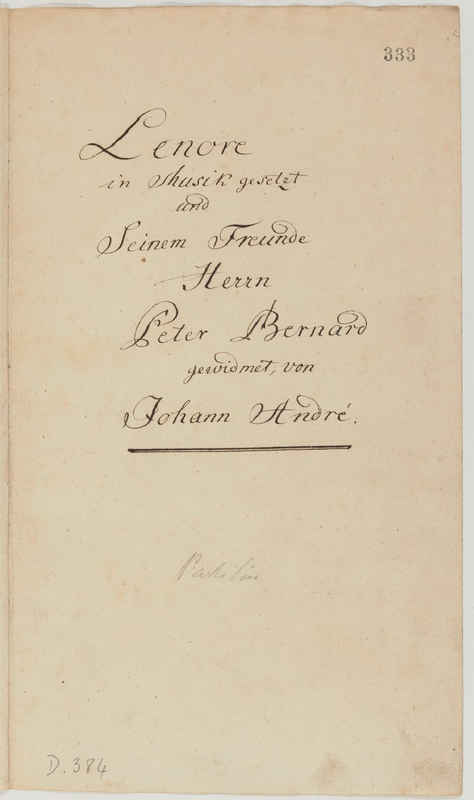 333
Lenore
in Musik gesetzt
und
Seinem Freunde
Herrn
Peter Bernard
gewidmet, von
Johann André.
D. 384